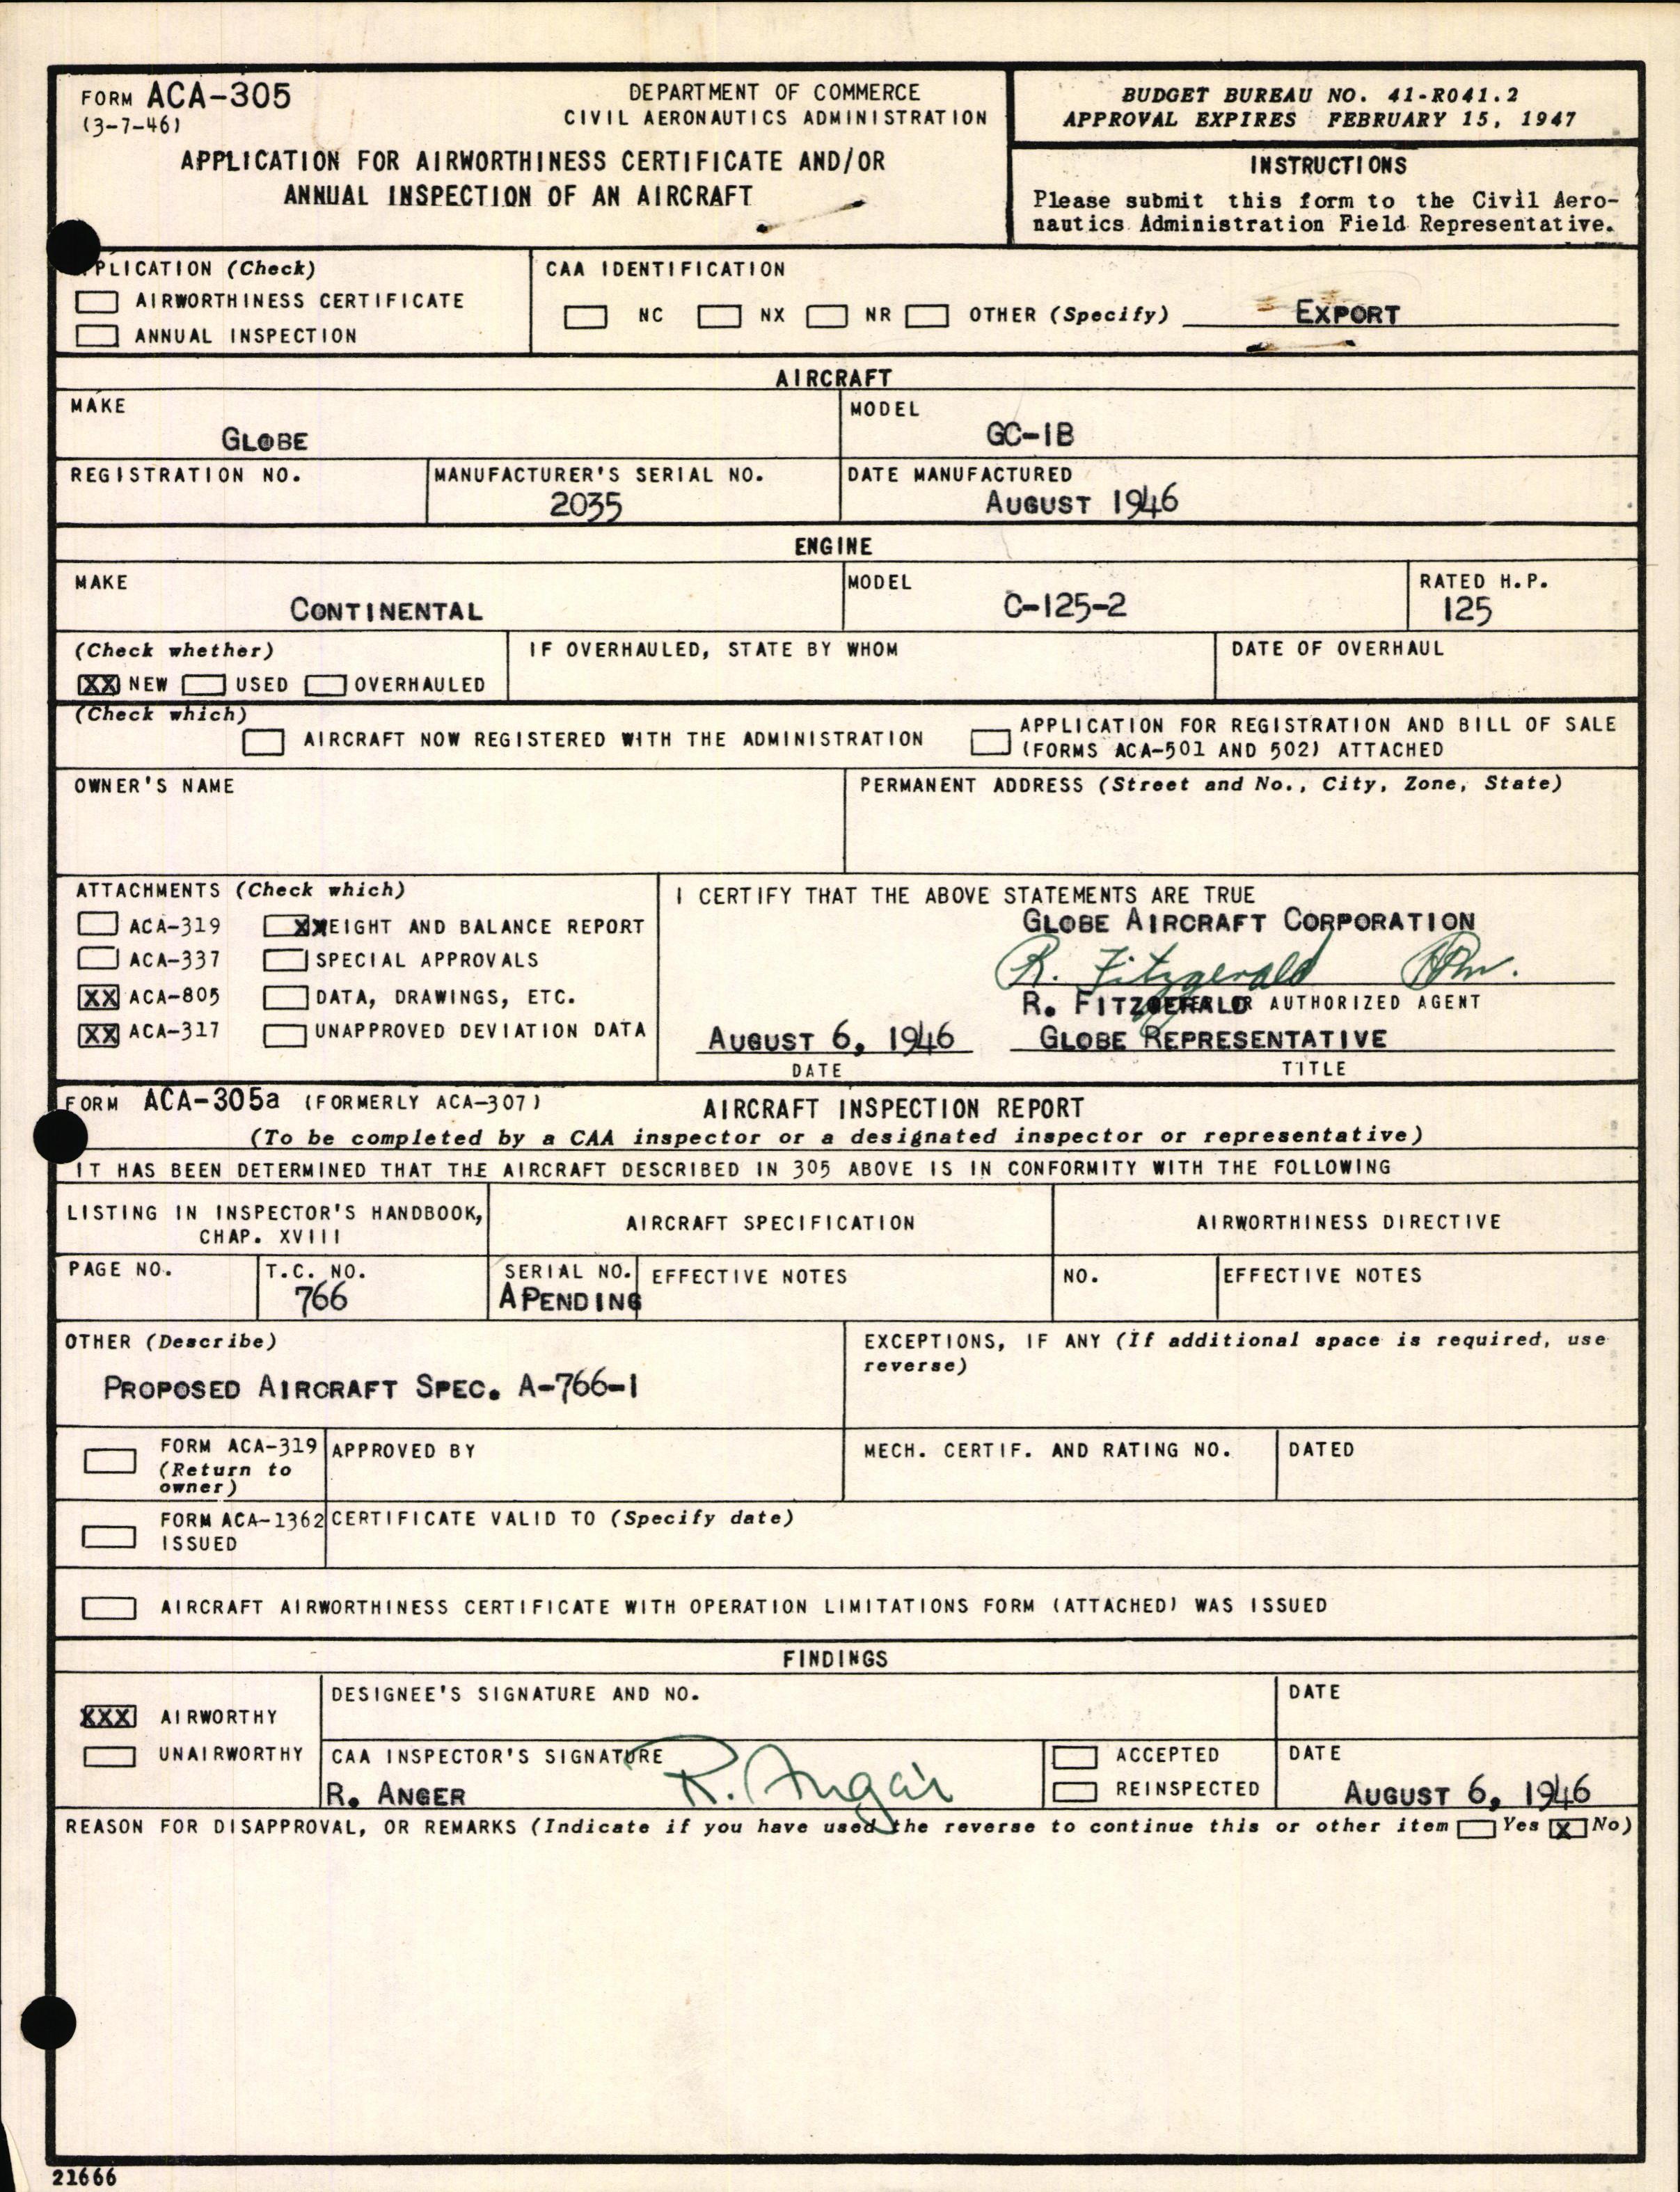 FORM ACA-305
(3-7-46)
DEPARTMENT OF COMMERCE
CIVIL AERONAUTICS ADMINISTRATION
APPLICATION FOR AIRWORTHINESS CERTIFICATE AND/OR
ANNUAL INSPECTION OF AN AIRCRAFT
BUDGET BUREAU NO. 41-R041.2
APPROVAL EXPIRES FEBRUARY 15, 1947
INSTRUCTIONS
Please submit this form to the Civil Aero-
nautics Administration Field Representative.
PLICATION (Check)
AIRWORTHINESS CERTIFICATE
ANNUAL INSPECTION
CAA IDENTIFICATION
NC NX NR OTHER (Specify) EXPORT
AIRCRAFT
MAKE
GLOBE
MODEL
GC-1B
REGISTRATION NO.
MANUFACTURER'S SERIAL NO.
2035
DATE MANUFACTURED
AUGUST 1946
ENGINE
MAKE
CONTINENTAL
MODEL
C-125-2
RATED H.P.
125
(Check whether)
XX NEW USED OVERHAULED
IF OVERHAULED, STATE BY WHOM
DATE OF OVERHAUL
(Check which)
AIRCRAFT NOW REGISTERED WITH THE ADMINISTRATION
APPLICATION FOR REGISTRATION AND BILL OF SALE
(FORMS ACA-501 AND 502) ATTACHED
OWNER'S NAME
PERMANENT ADDRESS (Street and No., City, Zone, State)
ATTACHMENTS (Check which)
ACA-319 XXEIGHT AND BALANCE REPORT
ACA-337 SPECIAL APPROVALS
XX ACA-805 DATA, DRAWINGS, ETC.
XX ACA-317 UNAPPROVED DEVIATION DATA
I CERTIFY THAT THE ABOVE STATEMENTS ARE TRUE
GLOBE AIRCRAFT CORPORATION
R. Fitzgerald
R. FITZGERALD AUTHORIZED AGENT
AUGUST 6, 1946 GLOBE REPRESENTATIVE
DATE TITLE
FORM ACA-305a (FORMERLY ACA-307) AIRCRAFT INSPECTION REPORT
(To be completed by a CAA inspector or a designated inspector or representative)
IT HAS BEEN DETERMINED THAT THE AIRCRAFT DESCRIBED IN 305 ABOVE IS IN CONFORMITY WITH THE FOLLOWING
LISTING IN INSPECTOR'S HANDBOOK,
CHAP. XVIII
AIRCRAFT SPECIFICATION
AIRWORTHINESS DIRECTIVE
PAGE NO.
T.C. NO.
766
SERIAL NO.
APENDING
EFFECTIVE NOTES
NO.
EFFECTIVE NOTES
OTHER (Describe)
PROPOSED AIRCRAFT SPEC. A-766-1
EXCEPTIONS, IF ANY (If additional space is required, use
reverse)
FORM ACA-319
(Return to
owner)
APPROVED BY
MECH. CERTIF. AND RATING NO.
DATED
FORM ACA-1362
ISSUED
CERTIFICATE VALID TO (Specify date)
AIRCRAFT AIRWORTHINESS CERTIFICATE WITH OPERATION LIMITATIONS FORM (ATTACHED) WAS ISSUED
FINDINGS
XXX AIRWORTHY
UNAIRWORTHY
DESIGNEE'S SIGNATURE AND NO.
DATE
CAA INSPECTOR'S SIGNATURE
R. ANGER R. Anger
ACCEPTED
REINSPECTED
DATE
AUGUST 6, 1946
REASON FOR DISAPPROVAL, OR REMARKS (Indicate if you have used the reverse to continue this or other item Yes X No)
21666